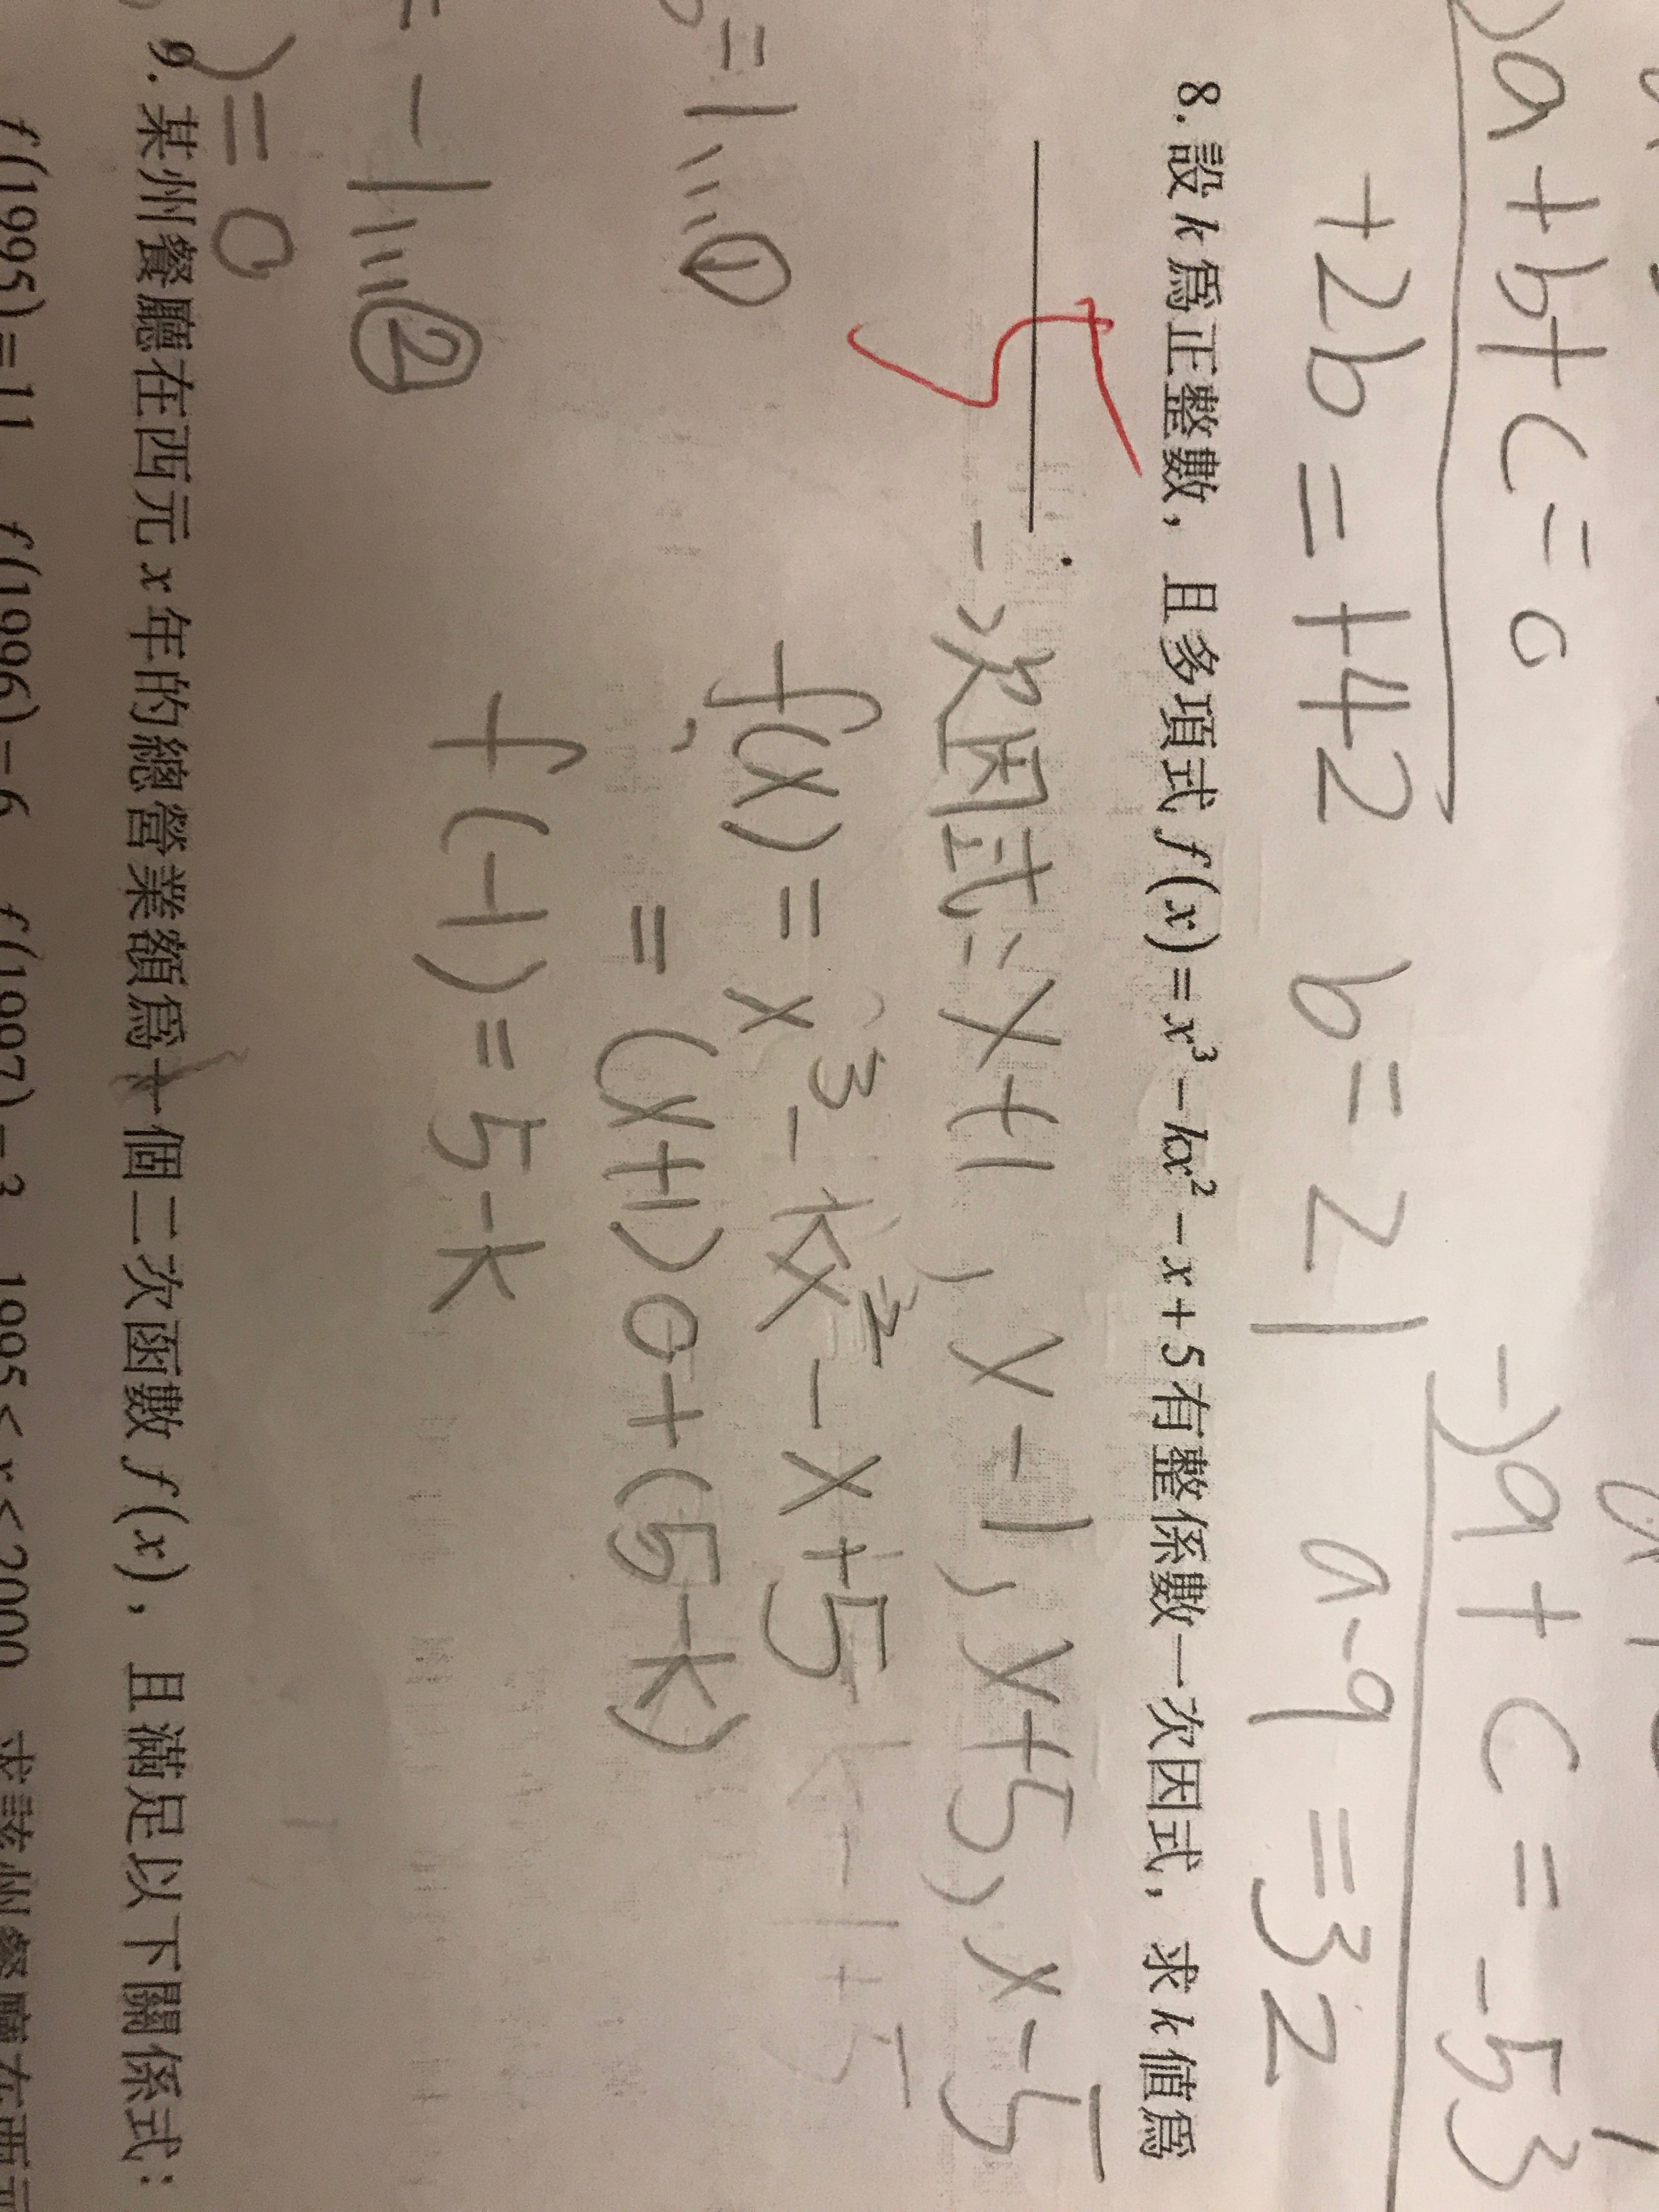 a+b+c=0
-)a+c=-53
+2b=+42 b=21 a-9=32
8. 設 k 為正整數，且多項式 f(x)=x³-kx²-x+5 有整係數一次因式，求 k 值為
一次因式：x+1, x-1, x+5, x-5
f(x)=x³-kx²-x+5
=1...① =(x+1)Q+(5-k)
=-1...② f(-1)=5-k
)=0
9. 某州餐廳在西元 x 年的總營業額為十個二次函數 f(x)，且滿足以下關係式：
f(1995)=11 f(1996)=6 f(1997)=3 1995<x<2000